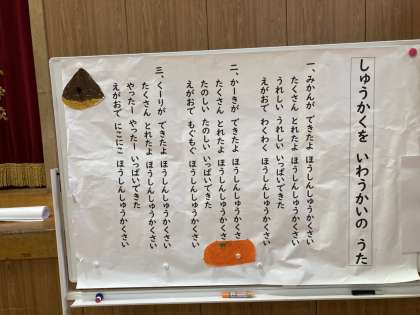 しゅうかくを いわうかいの うた
一、みかんが できたよ ほうしんしゅうかくさい
たくさん とれたよ ほうしんしゅうかくさい
うれしい うれしい いっぱいできた
えがおで わくわく ほうしんしゅうかくさい
二、かーきが できたよ ほうしんしゅうかくさい
たくさん とれたよ ほうしんしゅうかくさい
たのしい たのしい いっぱいできた
えがおで もぐもぐ ほうしんしゅうかくさい
三、くーりが できたよ ほうしんしゅうかくさい
たくさん とれたよ ほうしんしゅうかくさい
やったー やったー いっぱいできた
えがおで にこにこ ほうしんしゅうかくさい